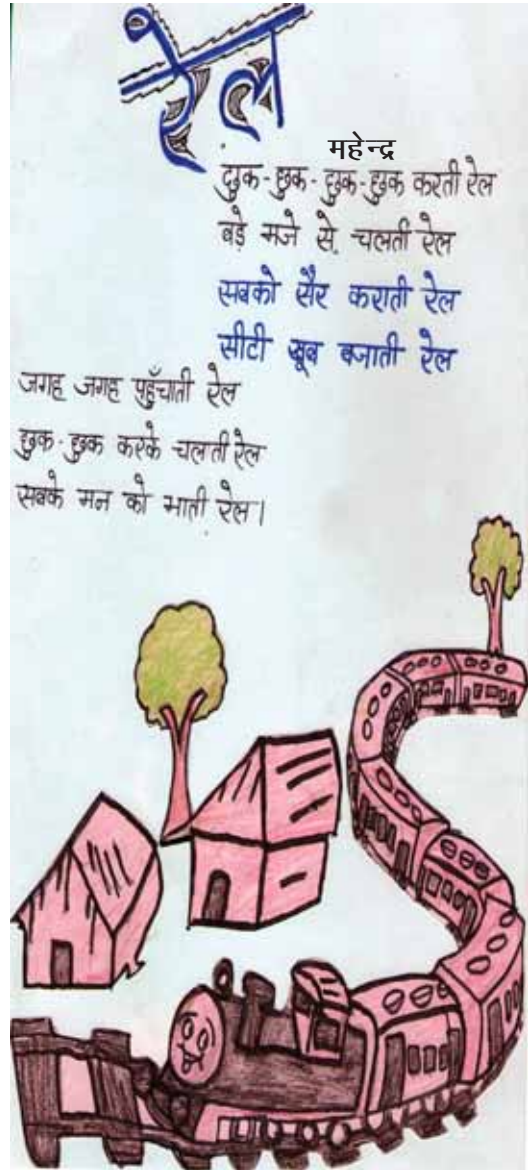 रेल
महेन्द्र
छुक-छुक-छुक-छुक करती रेल
बड़े मजे से चलती रेल
सबको सैर कराती रेल
सीटी खूब बजाती रेल
जगह जगह पहुँचाती रेल
छुक-छुक करके चलती रेल
सबके मन को भाती रेल।